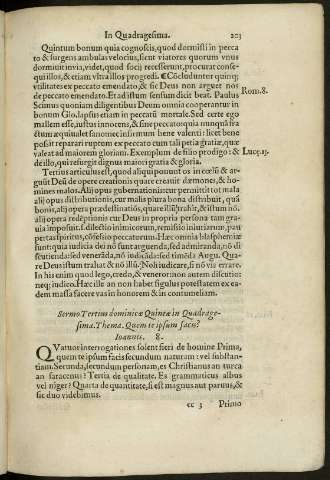 In Quadragesima. 203
Quintum bonum quia cognoscis, quod dormisti in pecca
to & surgens ambulas velocius, sicut viatores quorum vnus
dormit it inuia, videt, quod socij recesserunt, procurat conse-
qui illos, & etiam vltra illos progredi. ¶ Cõcludunter quinq;
vtilitates ex peccato emendato & sic Deus non arguet nos
de peccato emendato. Et ad istum sensum dicit beat. Paulus
Rom. 8.
Scimus quoniam diligentibus Deum omnia cooperantur in
bonum Glo. lapsus etiam in peccatũ mortale. Sed certe ego
mallem esse, iustus innocens, & sine peccato quia omnq̃ã fra
ctum æqualet sano nec infirmum bene valenti: licet bene
possit reparari ruptem ex peccato cum tali petia gratiæ, quæ
valeat ad maiorem gloriam. Exemplum de filio prodigo: &
Luc. 15.
de illo, qui resurgit dignus maiori gratia & gloria.
Tertius articulus est, quod aliqui ponunt os in cœlũ & ar-
guũt Deũ de opere creationis quare creauit dæmones, & ho-
mines malos. Alij opus gubernationis: cur permittit tot mala
alij opus distributionis, cur malis plura bona distribuit, quã
bonis, alij opera prædestinatiõs, quare illũ p̃scit, & istum nõ.
alij opera redẽptionis cur Deus in propria persona tam gra-
uia imposuit. s. dilectio inimicorum, remissio iniuriarum, pau
pertas spiritus, cõfessio peccatorum. Hæc omnia blasphemiæ
sunt: quia iudicia dei nõ sunt arguenda, sed admiranda, nõ di
scutienda: sed venerãda, nõ iudicãda: sed timẽda Augu. Qua-
re Deus istum trahat & nõ illũ. Noli iudicare, si nõ vis errare.
In his enim quod lego, credo, & veneror: non autem discutio:
neq; iudico. Hæc ille an non habet figulus potestatem ex ea-
dem massa facere vas in honorem & in contumeliam.
Sermo Tertius dominicæ Quintæ in Quadrage-
sima. Thema. Quem te ipsum facis?
Ioannis. 8.
QVatuor interrogationes solent fieri de homine Prima,
quem te ipsum facis secundum naturam: vel substan-
tiam. Secunda, secundum personam, es Christianus an turca
an saracenus? Tertia de qualitate. Es grammaticus albus
vel niger? Quarta de quantitate, si est magnus aut paruus, &
sic duo videbimus.
cc 3 Primo